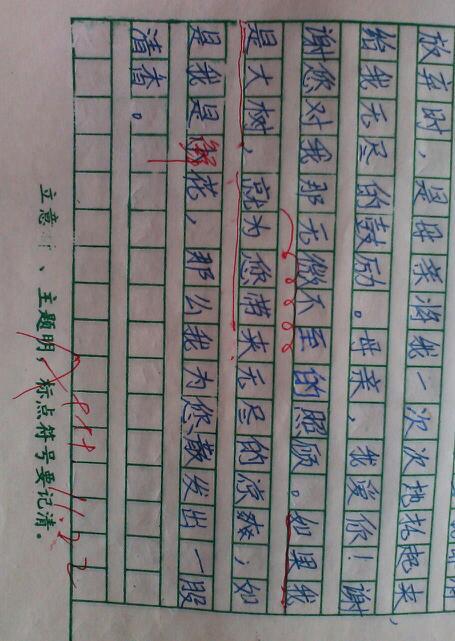 放弃时，是母亲将我一次次地拉起来，
给我无尽的鼓励。母亲，我爱你！谢
谢您对我那无微不至的照顾。如果我
是大树，就为您带来无尽的凉爽；如
是我是鲜花，那么我为您散发出一股
清香。
立意、主题明，标点符号要记清。